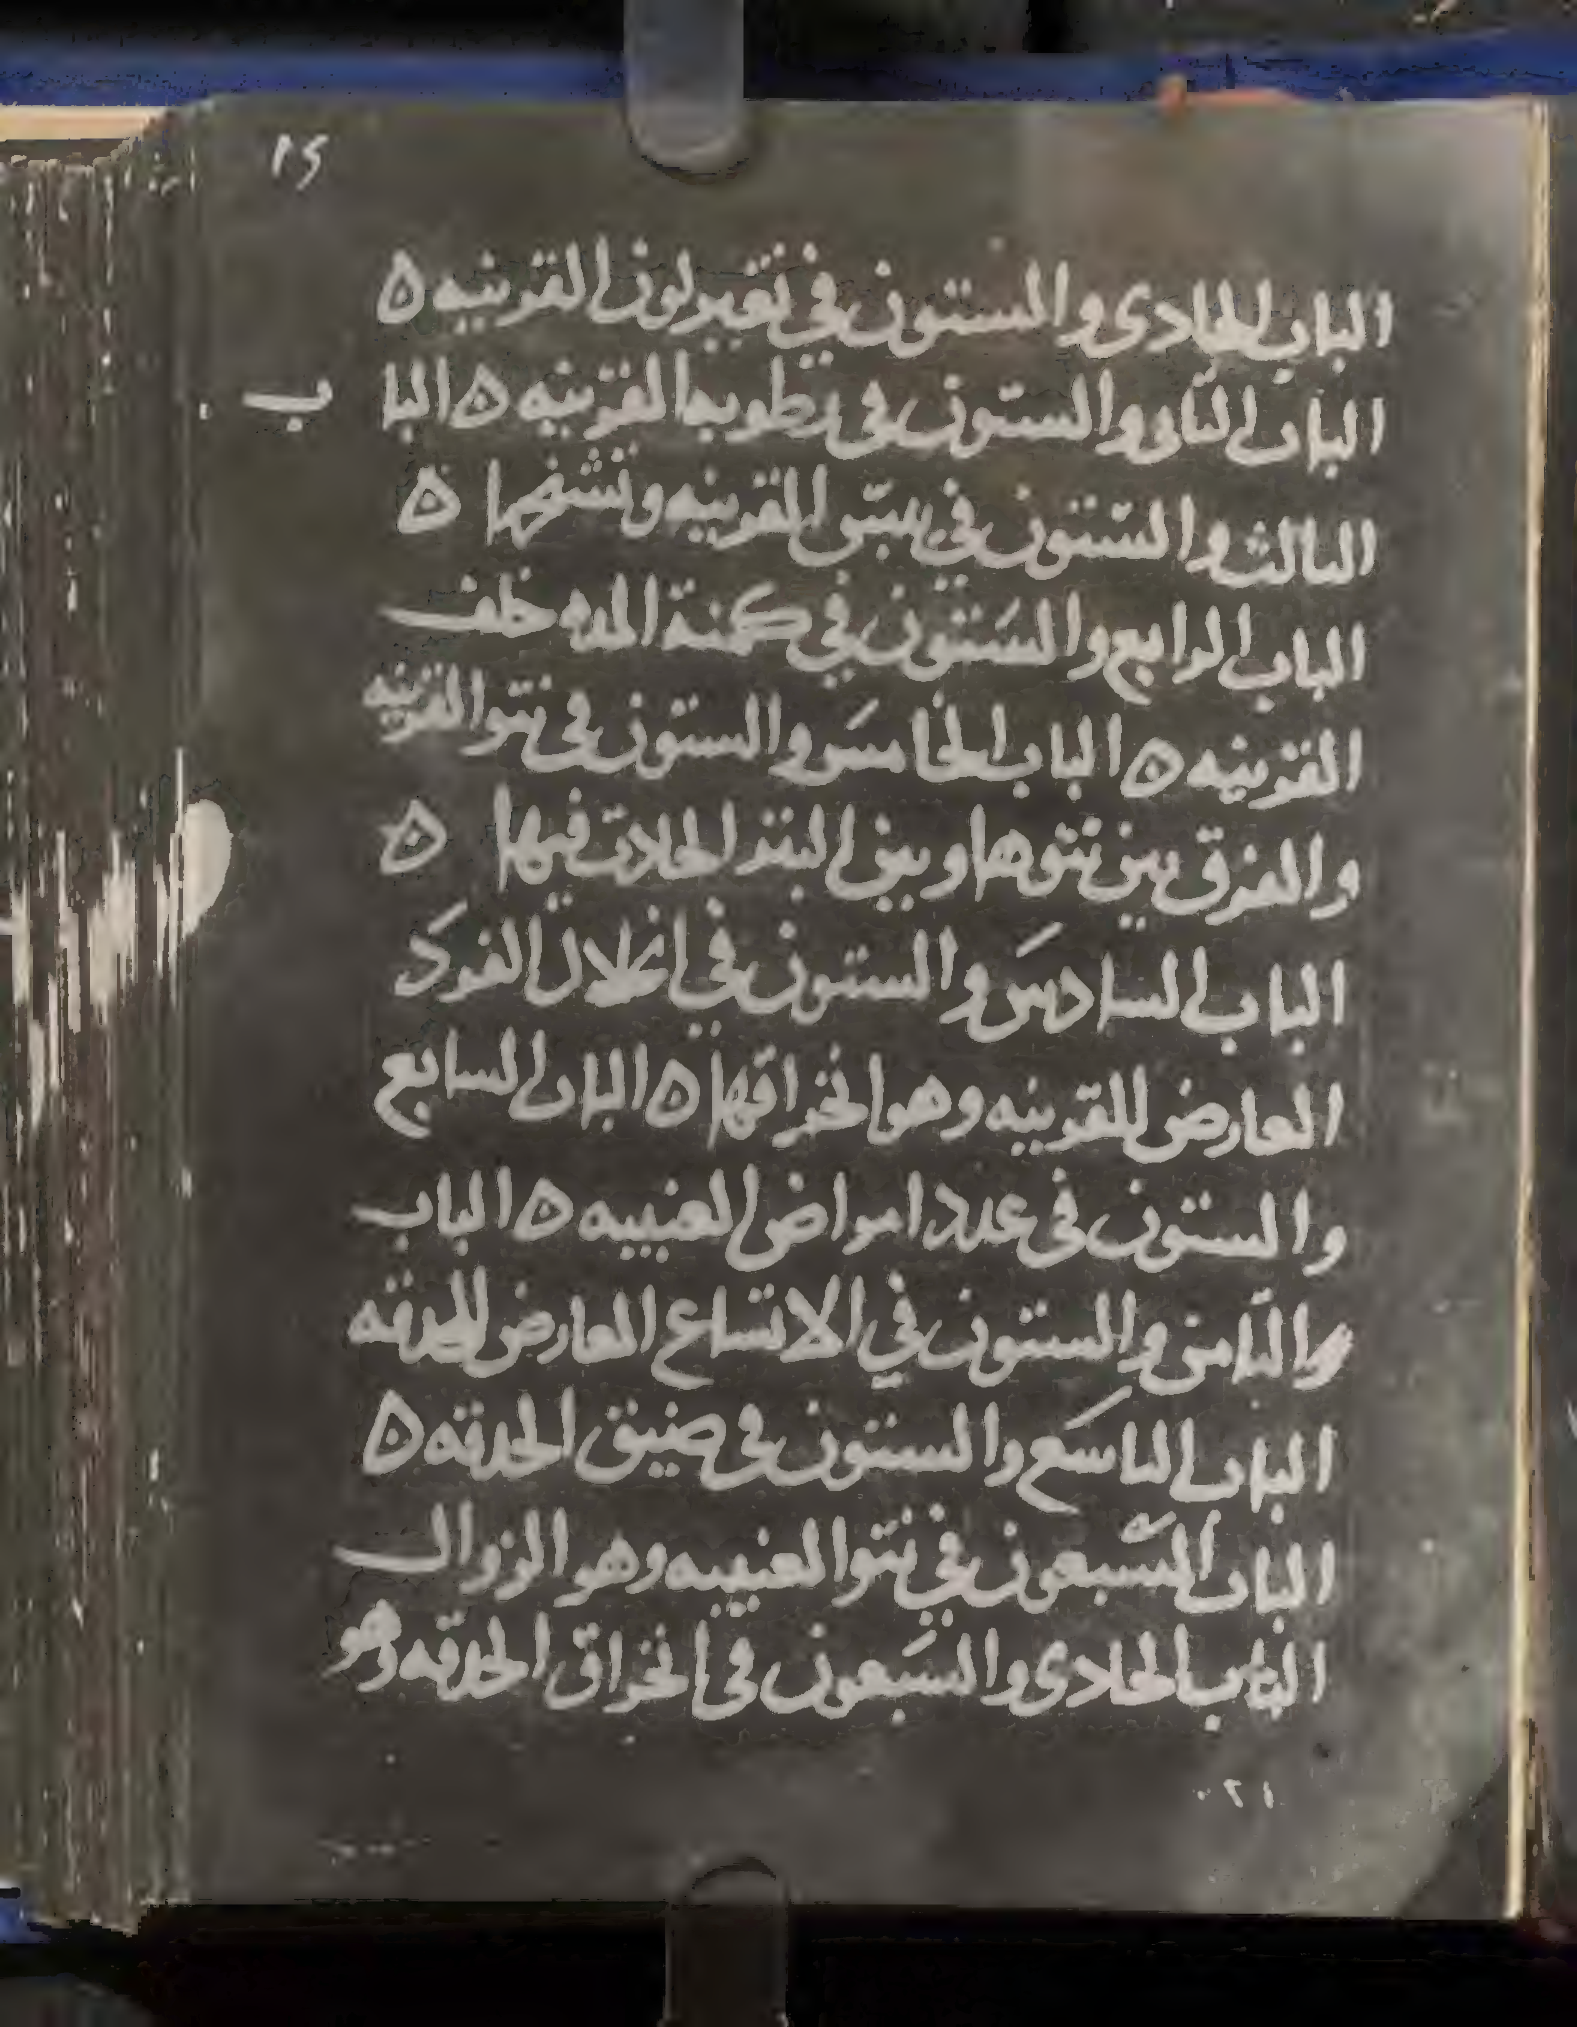 ١٤
الباب الحادى والستون في تغير لون القرنيه ه
الباب الثانى والستون فى رطوبه القرنيه ه البا ب
الثالث والستون في يبس القرنيه وتشنجها ه
الباب الرابع والستون في كمنة المده خلف
القرنيه ه الباب الخامس والستون في نتو القرنيه
والفرق بين نتوها وبين البثر الحادث فيها ه
الباب السادس والستون في انحلال الفرد
العارض للقرنيه وهو انخراقها ه الباب السابع
والستون في عدد امراض العنبيه ه الباب
والثامن والستون في الاتساع العارض للحدقه
الباب التاسع والستون في ضيق الحدقه ه
الباب السبعون في نتو العنبيه وهو الزوال
الباب الحادى والسبعون في انخراق الحدقه وهو